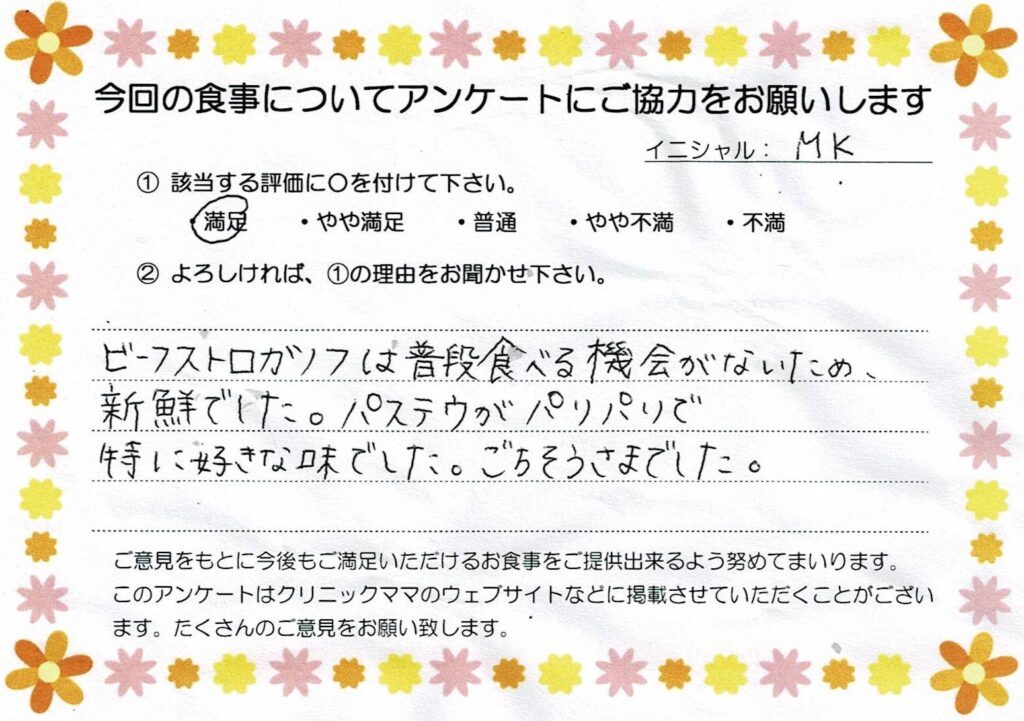 今回の食事についてアンケートにご協力をお願いします
イニシャル： MK
① 該当する評価に〇を付けて下さい。
・満足 ・やや満足 ・普通 ・やや不満 ・不満
② よろしければ、①の理由をお聞かせ下さい。
ビーフストロガノフは普段食べる機会がないため、
新鮮でした。パステウがパリパリで
特に好きな味でした。ごちそうさまでした。
ご意見をもとに今後もご満足いただけるお食事をご提供出来るよう努めてまいります。
このアンケートはクリニックママのウェブサイトなどに掲載させていただくことがござい
ます。たくさんのご意見をお願い致します。